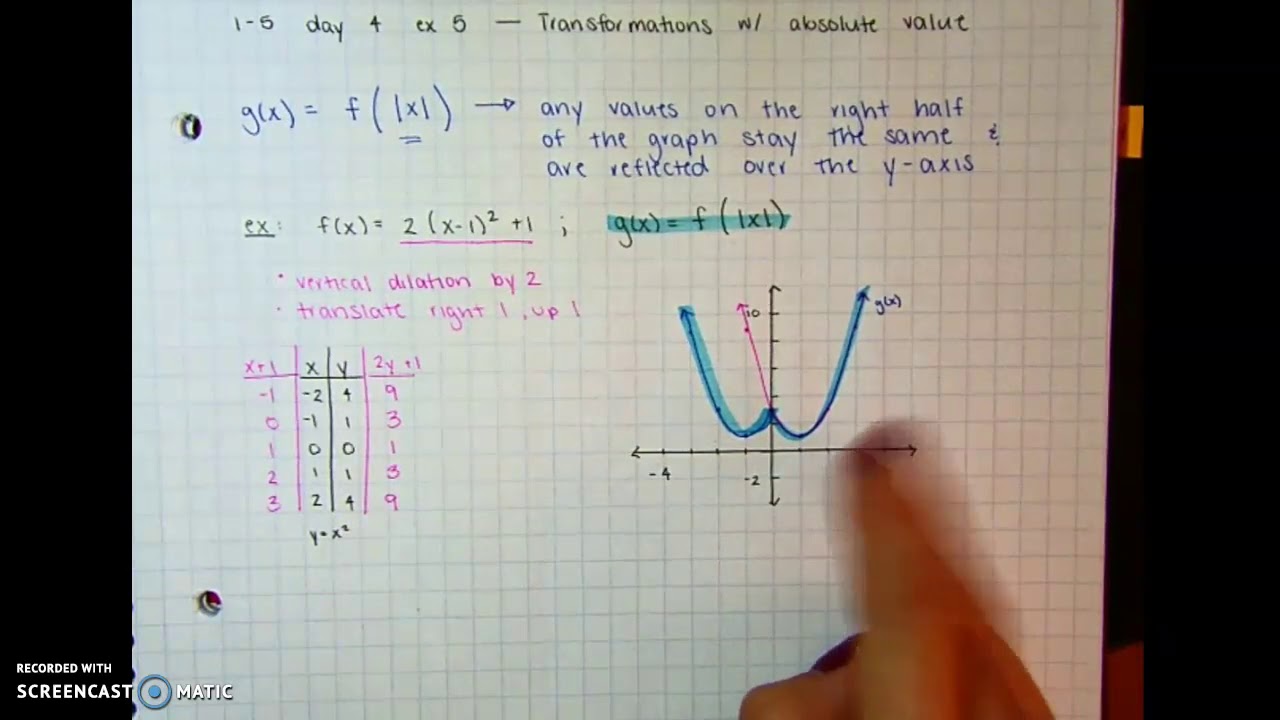 1-5 day 4 ex 5 — Transformations w/ absolute value
g(x) = f(|x|) → any values on the right half
of the graph stay the same &
are reflected over the y-axis
ex: f(x) = 2(x-1)² +1 ; g(x) = f(|x|)
· vertical dilation by 2
· translate right 1, up 1
x+1 x y 2y+1
-1 -2 4 9
0 -1 1 3
1 0 0 1
2 1 1 3
3 2 4 9
y=x²
10
g(x)
-4
-2
RECORDED WITH
SCREENCAST MATIC